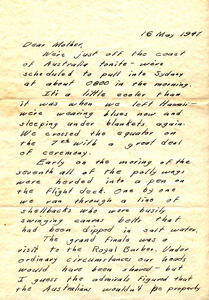 16 May 1947
Dear Mother,
We're just off the coast
of Australia tonite - were
scheduled to pull into Sydney
at about 0800 in the morning.
It's a little cooler than
it was when we left Hawaii -
were wearing blues now and
sleeping under blankets again.
We crossed the equator on
the 7th with a great deal
of ceremony.
Early on the moring of the
seventh all of the polly wogs
were herded into a pen on
the flight deck. One by one
we ran through a line of
shellbacks who were busily
swinging canvas belts that
had been dipped in salt water.
The grand finale was a
visit to the Royal Barber. Under
ordinary circumstances our heads
would have been shaved - but
I guess the admirals figured that
the Australians wouldn't be properly